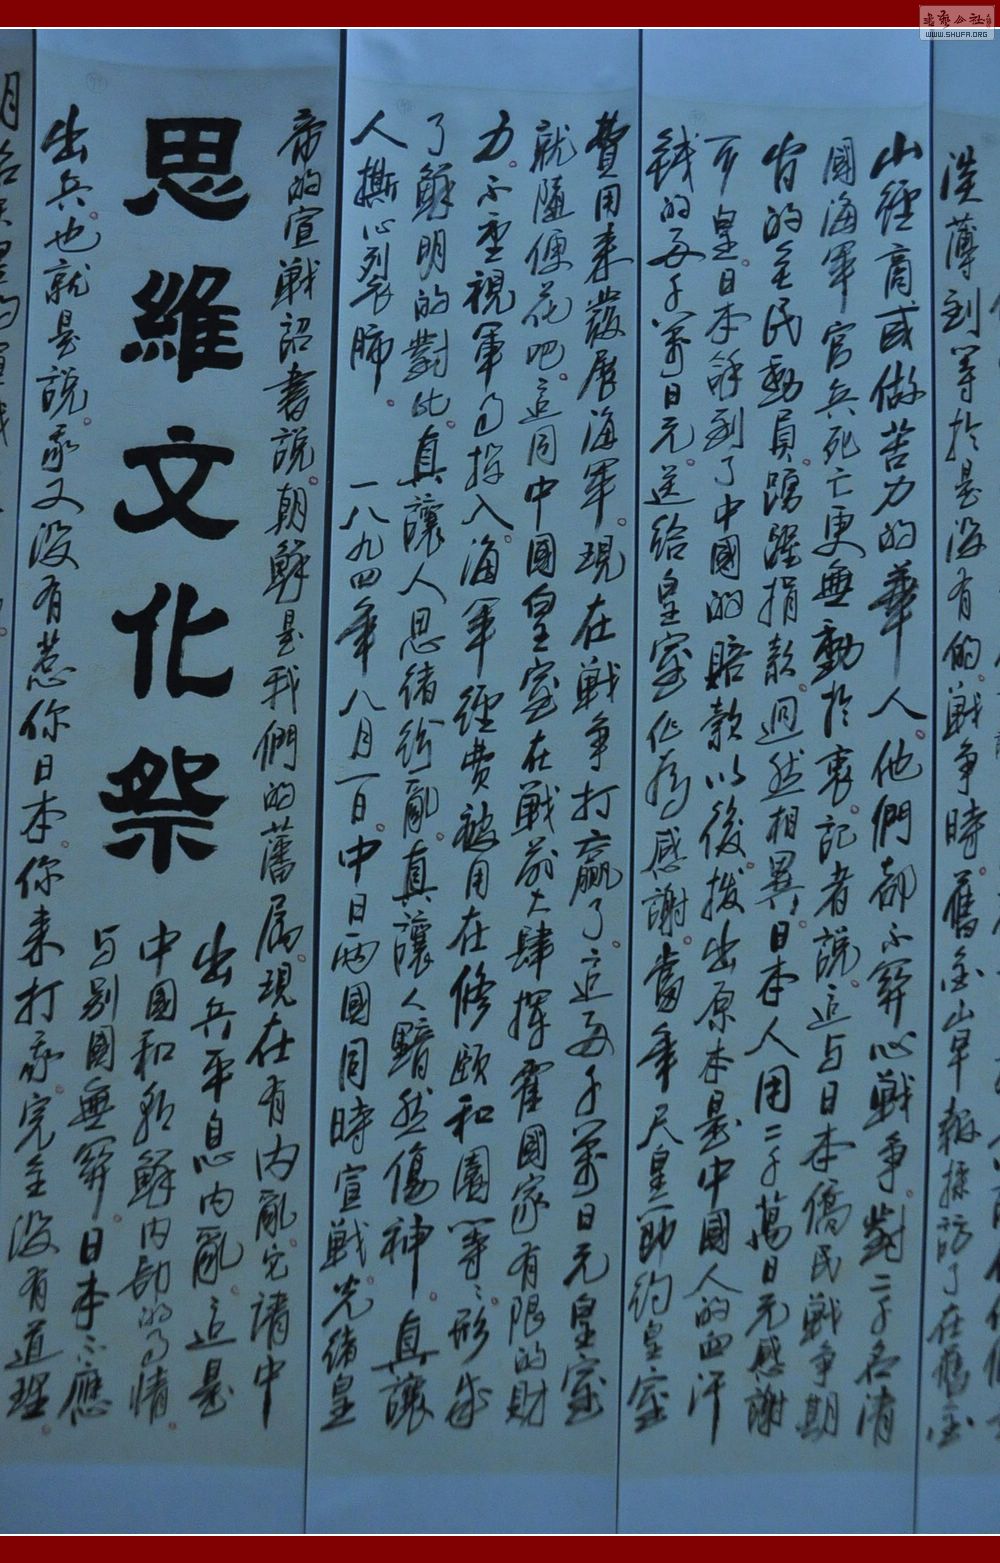 淡薄到等於是没有的戦争時舊金山早報採訪了在舊金
山經商或做苦力的華人他們都不関心戦争對二千名清
國海軍官兵死亡更無動於衷記者説這与日本僑民戦争期
间的全民動員踴躍捐款迥然相異日本人用二千萬日元感謝
天皇日本得到了中國的賠款以後拨出原本是中國人的血汗
錢的两千萬日元送给皇室作为感謝當年天皇節约皇室
費用来發展海軍現在戦争打贏了這两千萬日元皇室
就隨便花吧這同中國皇室在戦前大肆揮霍國家有限的財
力不重視軍事投入海軍經費被用在修颐和園等等形成
了鲜明的對比真讓人思绪纷亂真讓人黯然傷神真讓
人撕心裂肺 一八九四年八月一日中日两國同時宣戦光绪皇
帝的宣戦詔書説朝鲜是我們的藩属現在有内亂它請中
思維文化祭
出兵平息内亂這是
中國和朝鲜内部的事情
与别國無関日本不應
出兵也就是説我又没有惹你日本你来打我完全没有道理